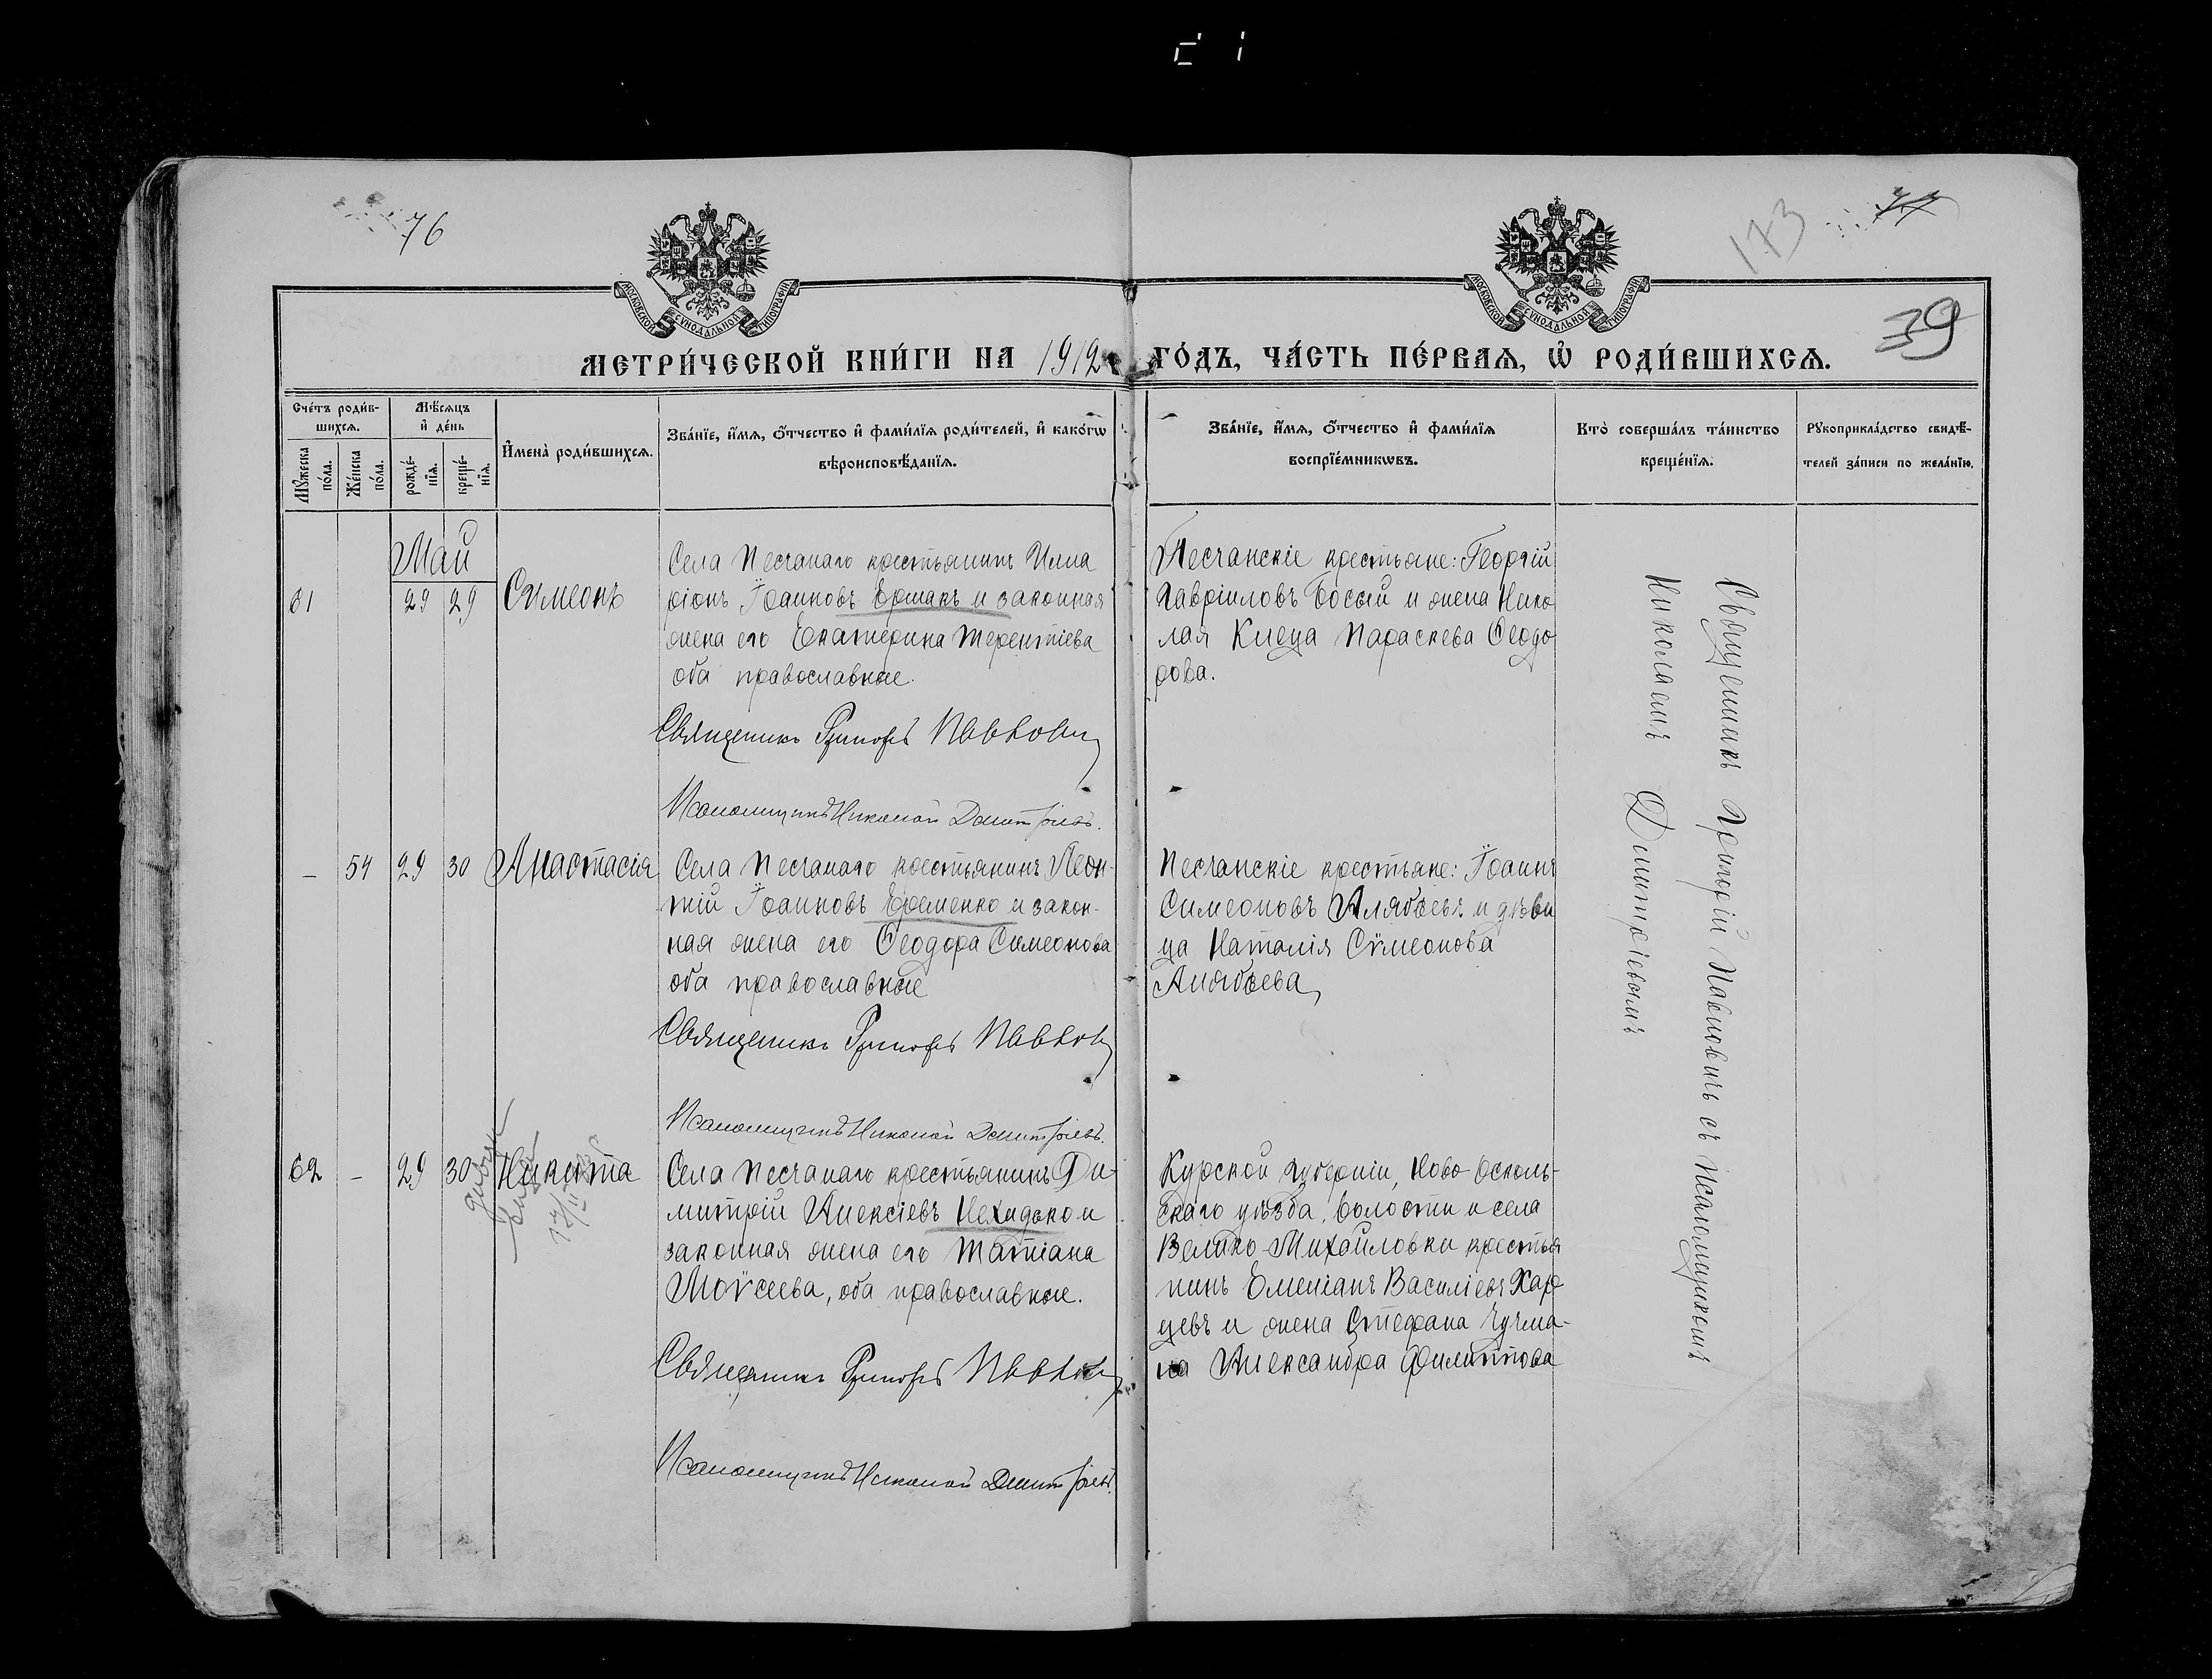 76
173
39
МОСКОВСКОЙ СѴНОДАЛЬНОЙ ТИПОГРАФІИ
МОСКОВСКОЙ СѴНОДАЛЬНОЙ ТИПОГРАФІИ
МЕТРИ́ЧЕСКОЙ КНИ́ГИ НА 1912 ГО́ДЪ, ЧА́СТЬ ПЕ́РВАЯ, Ѡ РОДИ́ВШИХСЯ.
Сче́тъ роди́в-
шихся.
Мѣ́сяцъ
и де́нь
Мужеска
по́ла.
Же́нска
по́ла.
рожде́-
нія.
креще́-
нія.
Имена̀ роди́вшихся.
Зва́ніе, и́мя, о́тчество и фами́лія роди́телей, и како́гѡ
вѣроисповѣ́данія.
Зва́ніе, и́мя, о́тчество и фами́лія
воспріе́мникѡвъ.
Кто̀ соверша́лъ та́инство
креще́нія.
Рукоприкла́дство свидѣ́-
телей за́писи по жела́нію.
Май
61 29 29 Сѵмеонъ
Села Песчанаго крестьянинъ Илла
ріонъ Іоанновъ Ермакъ и законная
жена его Екатерина Терентіева
оба православные.
Священникъ Григорій Павлович
Псаломщикъ Николай Димитріевъ.
Песчанскіе крестьяне: Георгій
Гавріиловъ Босый и жена Нико
лая Клеца Параскева Ѳеодо
рова.
Священникъ Григорій Павловичъ съ псаломщикомъ
Николаемъ Димитріевымъ
– 54 29 30 Анастасія
Села Песчанаго крестьянинъ Леон-
тій Іоанновъ Еременко и закон-
ная жена его Ѳеодора Симеонова
оба православные
Священникъ Григорій Павлович
Псаломщикъ Николай Димитріевъ.
Песчанскіе крестьяне: Іоаннъ
Симеоновъ Алябьевъ и дѣви
ца Наталія Сѵмеонова
Алябьева,
62 – 29 30 Никита
Села Песчанаго крестьянинъ Ди-
митрій Алексіевъ Нехидько и
законная жена его Татіана
Моѵсеева, оба православные.
Священникъ Григорій Павлович
Псаломщикъ Николай Димитріевъ.
Курской губерніи, Ново-Осколь-
скаго уѣзда, волости и села
Велико-Михайловки крестья
нинъ Емеліанъ Василіевъ Хар
цевъ и жена Стефана Чучма-
ла Александра Филиппова